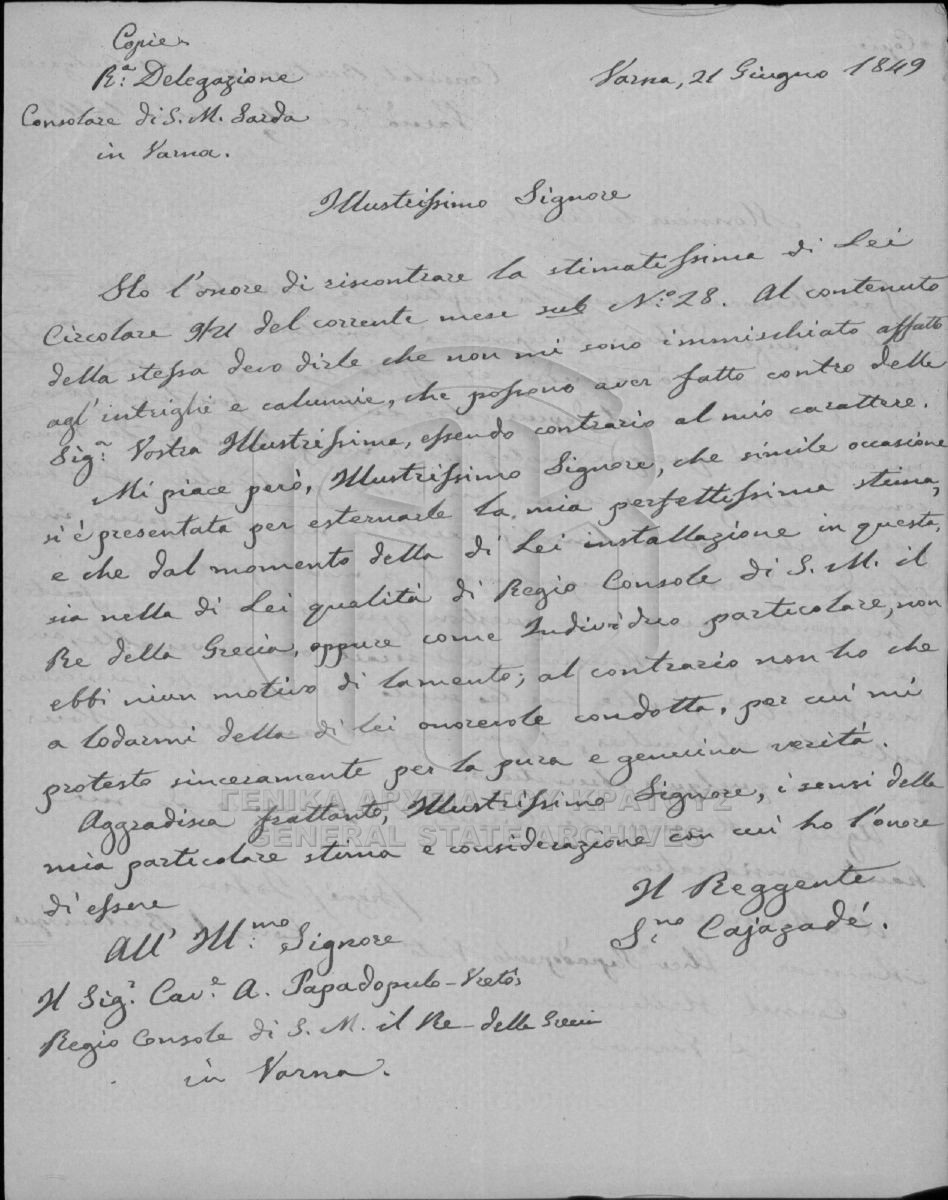 Copie
R.ª Delegazione
Consolare di S. M. Sarda
in Varna.
Varna, 21 Giugno 1849
Illustrissimo Signore
Ho l'onore di riscontrare la stimatissima di Lei
Circolare 9/21 del corrente mese sub N.º 28. Al contenuto
della stessa devo dirle che non mi sono immischiato affatto
agl'intrighi e calunnie, che possono aver fatto contro della
Sig.ª Vostra Illustrissima, essendo contrario al mio carattere.
Mi piace però, Illustrissimo Signore, che simile occasione
si è presentata per esternarle la mia perfettissima stima,
e che dal momento della di Lei installazione in questa,
sia nella di Lei qualità di Regio Console di S. M. il
Re della Grecia, oppure come Individuo particolare, non
ebbi niun motivo di lamento; al contrario non ho che
a lodarmi della di lei onorevole condotta, per cui mi
protesto sinceramente per la pura e genuina verità.
Aggradisca frattanto, Illustrissimo Signore, i sensi della
mia particolare stima e considerazione con cui ho l'onore
di essere
Il Reggente
S.no Cajazadé.
All' Ill.mo Signore
Il Sig.r Cav.e A. Papadopulo-Vretòs
Regio Console di S. M. il Re della Grecia
in Varna.
ΓΕΝΙΚΑ ΑΡΧΕΙΑ ΤΟΥ ΚΡΑΤΟΥΣ
GENERAL STATE ARCHIVES